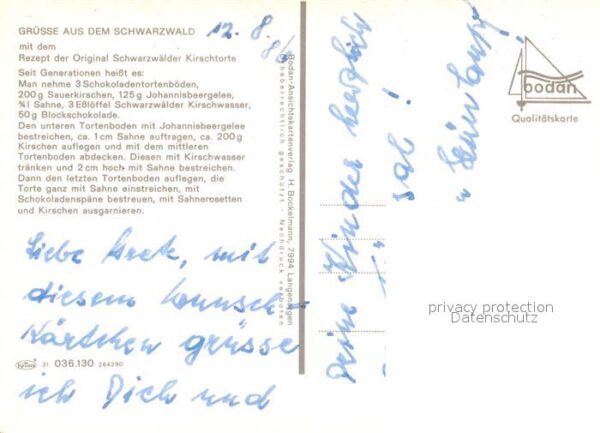 GRÜSSE AUS DEM SCHWARZWALD
12. 8. 86
mit dem
Rezept der Original Schwarzwälder Kirschtorte
Seit Generationen heißt es:
Man nehme 3 Schokoladentortenböden,
200 g Sauerkirschen, 125 g Johannisbeergelee,
¾ l Sahne, 3 Eßlöffel Schwarzwälder Kirschwasser,
50 g Blockschokolade.
Den unteren Tortenboden mit Johannisbeergelee
bestreichen, ca. 1 cm Sahne auftragen, ca. 200 g
Kirschen auflegen und mit dem mittleren
Tortenboden abdecken. Diesen mit Kirschwasser
tränken und 2 cm hoch mit Sahne bestreichen.
Dann den letzten Tortenboden auflegen, die
Torte ganz mit Sahne einstreichen, mit
Schokoladenspäne bestreuen, mit Sahnerosetten
und Kirschen ausgarnieren.
Liebe Gret, mit
diesem
Kärtchen grüsse
ich Dich und
31 036.130 264290
Bodan-Ansichtskartenverlag H. Bockelmann, 7994 Langenargen
Urheberrechtlich geschützt · Nachdruck verboten
Deine Kinder herzlich
bodan
Qualitätskarte
privacy protection
Datenschutz